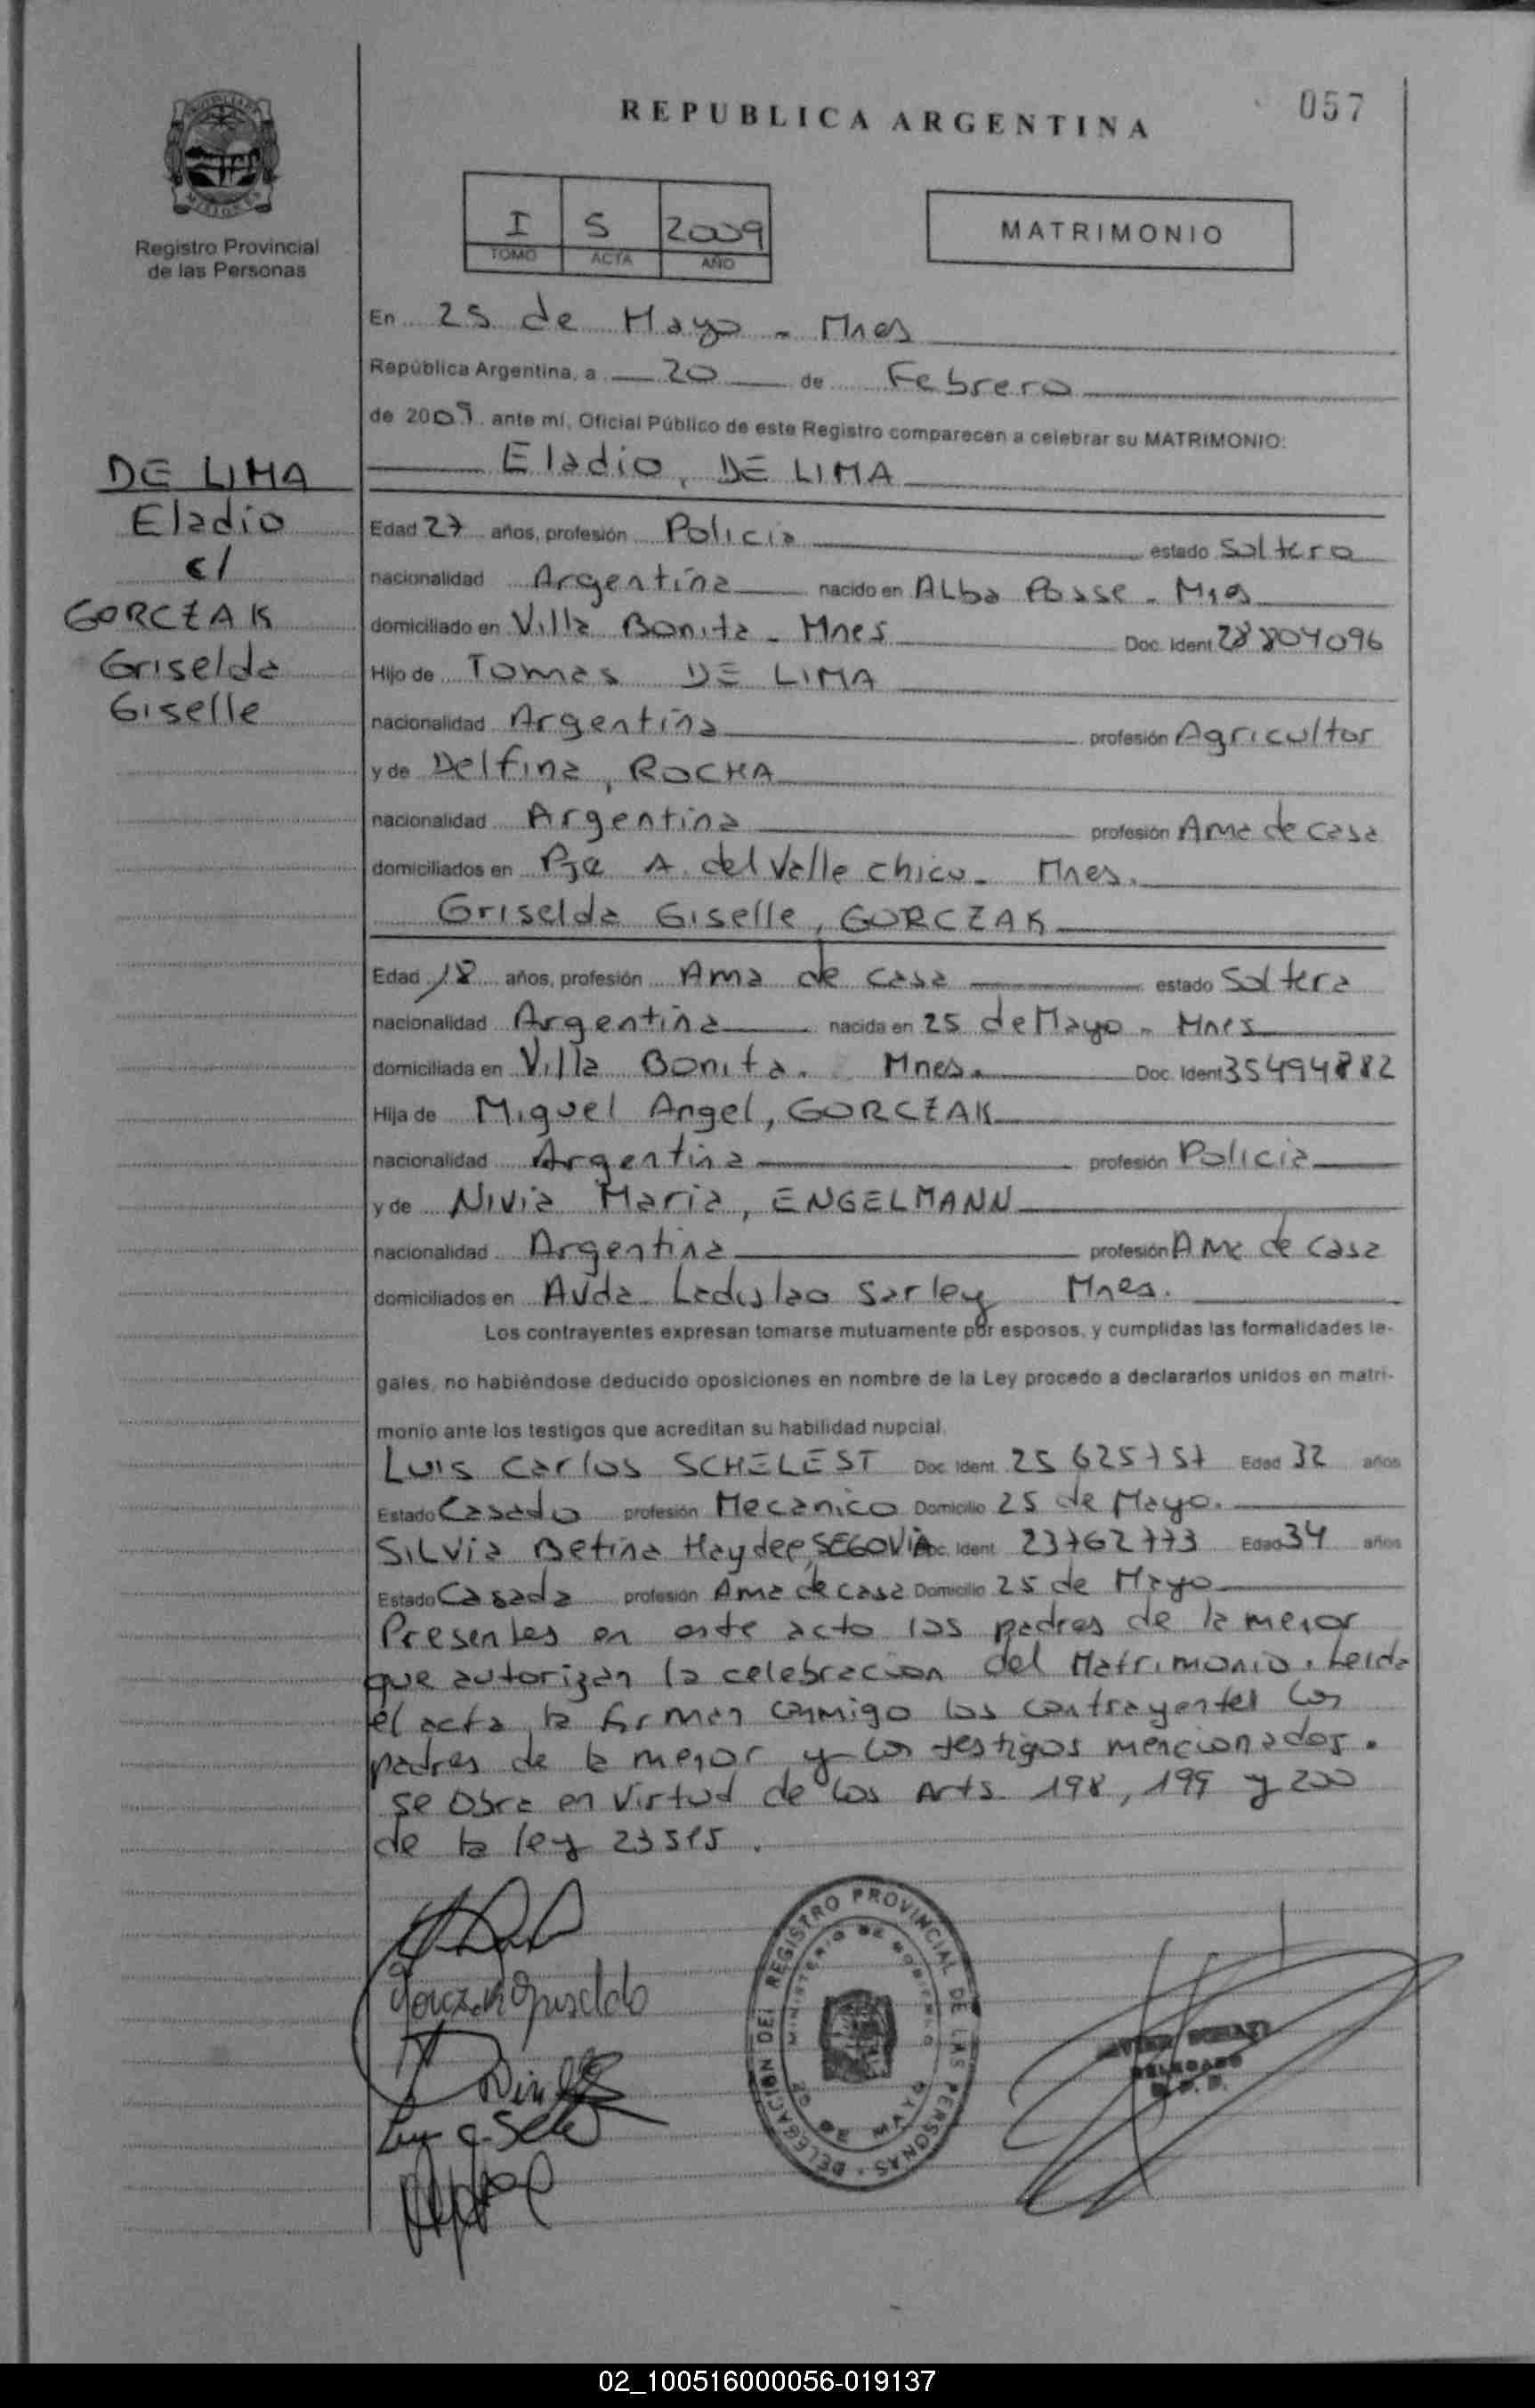 057
REPUBLICA ARGENTINA
MISIONES
Registro Provincial
de las Personas
I 5 2009
TOMO ACTA AÑO
MATRIMONIO
En 25 de Mayo - Mnes
República Argentina, a 20 de Febrero
de 2009 ante mí, Oficial Público de este Registro comparecen a celebrar su MATRIMONIO:
DE LIMA
Eladio
c/
GORCZAK
Griselda
Giselle
Eladio, DE LIMA
Edad 27 años, profesión Policia estado Soltero
nacionalidad Argentina nacido en Alba Posse - Mnes
domiciliado en Villa Bonita - Mnes Doc. Ident 28804096
Hijo de Tomas DE LIMA
nacionalidad Argentina profesión Agricultor
y de Delfina, ROCHA
nacionalidad Argentina profesión Ama de casa
domiciliados en Pje A. del Valle chico - Mnes.
Griselda Giselle, GORCZAK
Edad 18 años, profesión Ama de casa estado Soltera
nacionalidad Argentina nacida en 25 de Mayo - Mnes
domiciliada en Villa Bonita. Mnes. Doc. Ident 35494882
Hija de Miguel Angel, GORCZAK
nacionalidad Argentina profesión Policia
y de Nivia Maria, ENGELMANN
nacionalidad Argentina profesión Ama de casa
domiciliados en Avda Ladislao Sarley Mnes.
Los contrayentes expresan tomarse mutuamente por esposos, y cumplidas las formalidades le-
gales, no habiéndose deducido oposiciones en nombre de la Ley procedo a declararlos unidos en matri-
monio ante los testigos que acreditan su habilidad nupcial.
Luis Carlos SCHELEST Doc. Ident. 25625757 Edad 32 años
Estado Casado profesión Mecanico Domicilio 25 de Mayo.
Silvia Betina Haydee, SEGOVIA Doc. Ident. 23762773 Edad 34 años
Estado Casada profesión Ama de casa Domicilio 25 de Mayo
Presentes en este acto los padres de la menor
que autorizan la celebracion del Matrimonio. Leida
el acta, la firman conmigo los contrayentes los
padres de la menor y los testigos mencionados.
se obra en virtud de los Arts. 198, 199 y 200
de la ley 23515.
Gorczak Griselda
DELEGACION DEL REGISTRO PROVINCIAL DE LAS PERSONAS
MINISTERIO DE GOBIERNO
25 DE MAYO
DELEGADO
02_100516000056-019137